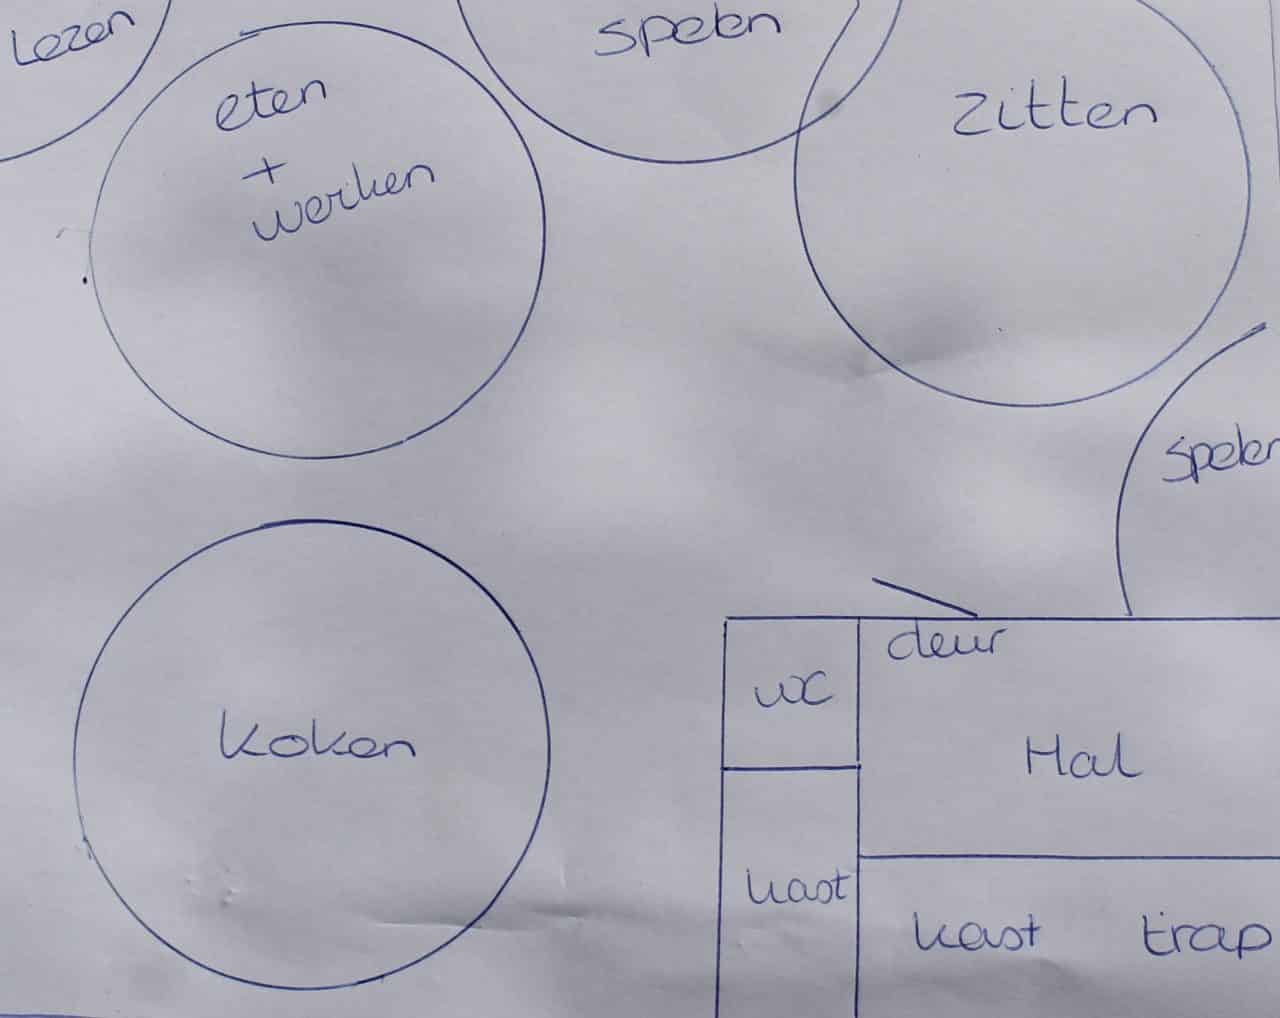 Lezen
spelen
eten
+
werken
zitten
spelen
deur
wc
Hal
koken
kast
kast trap